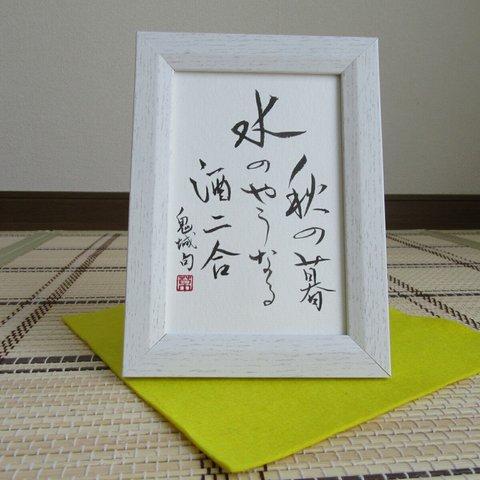 秋の暮
水のやうなる
酒二合
鬼城句